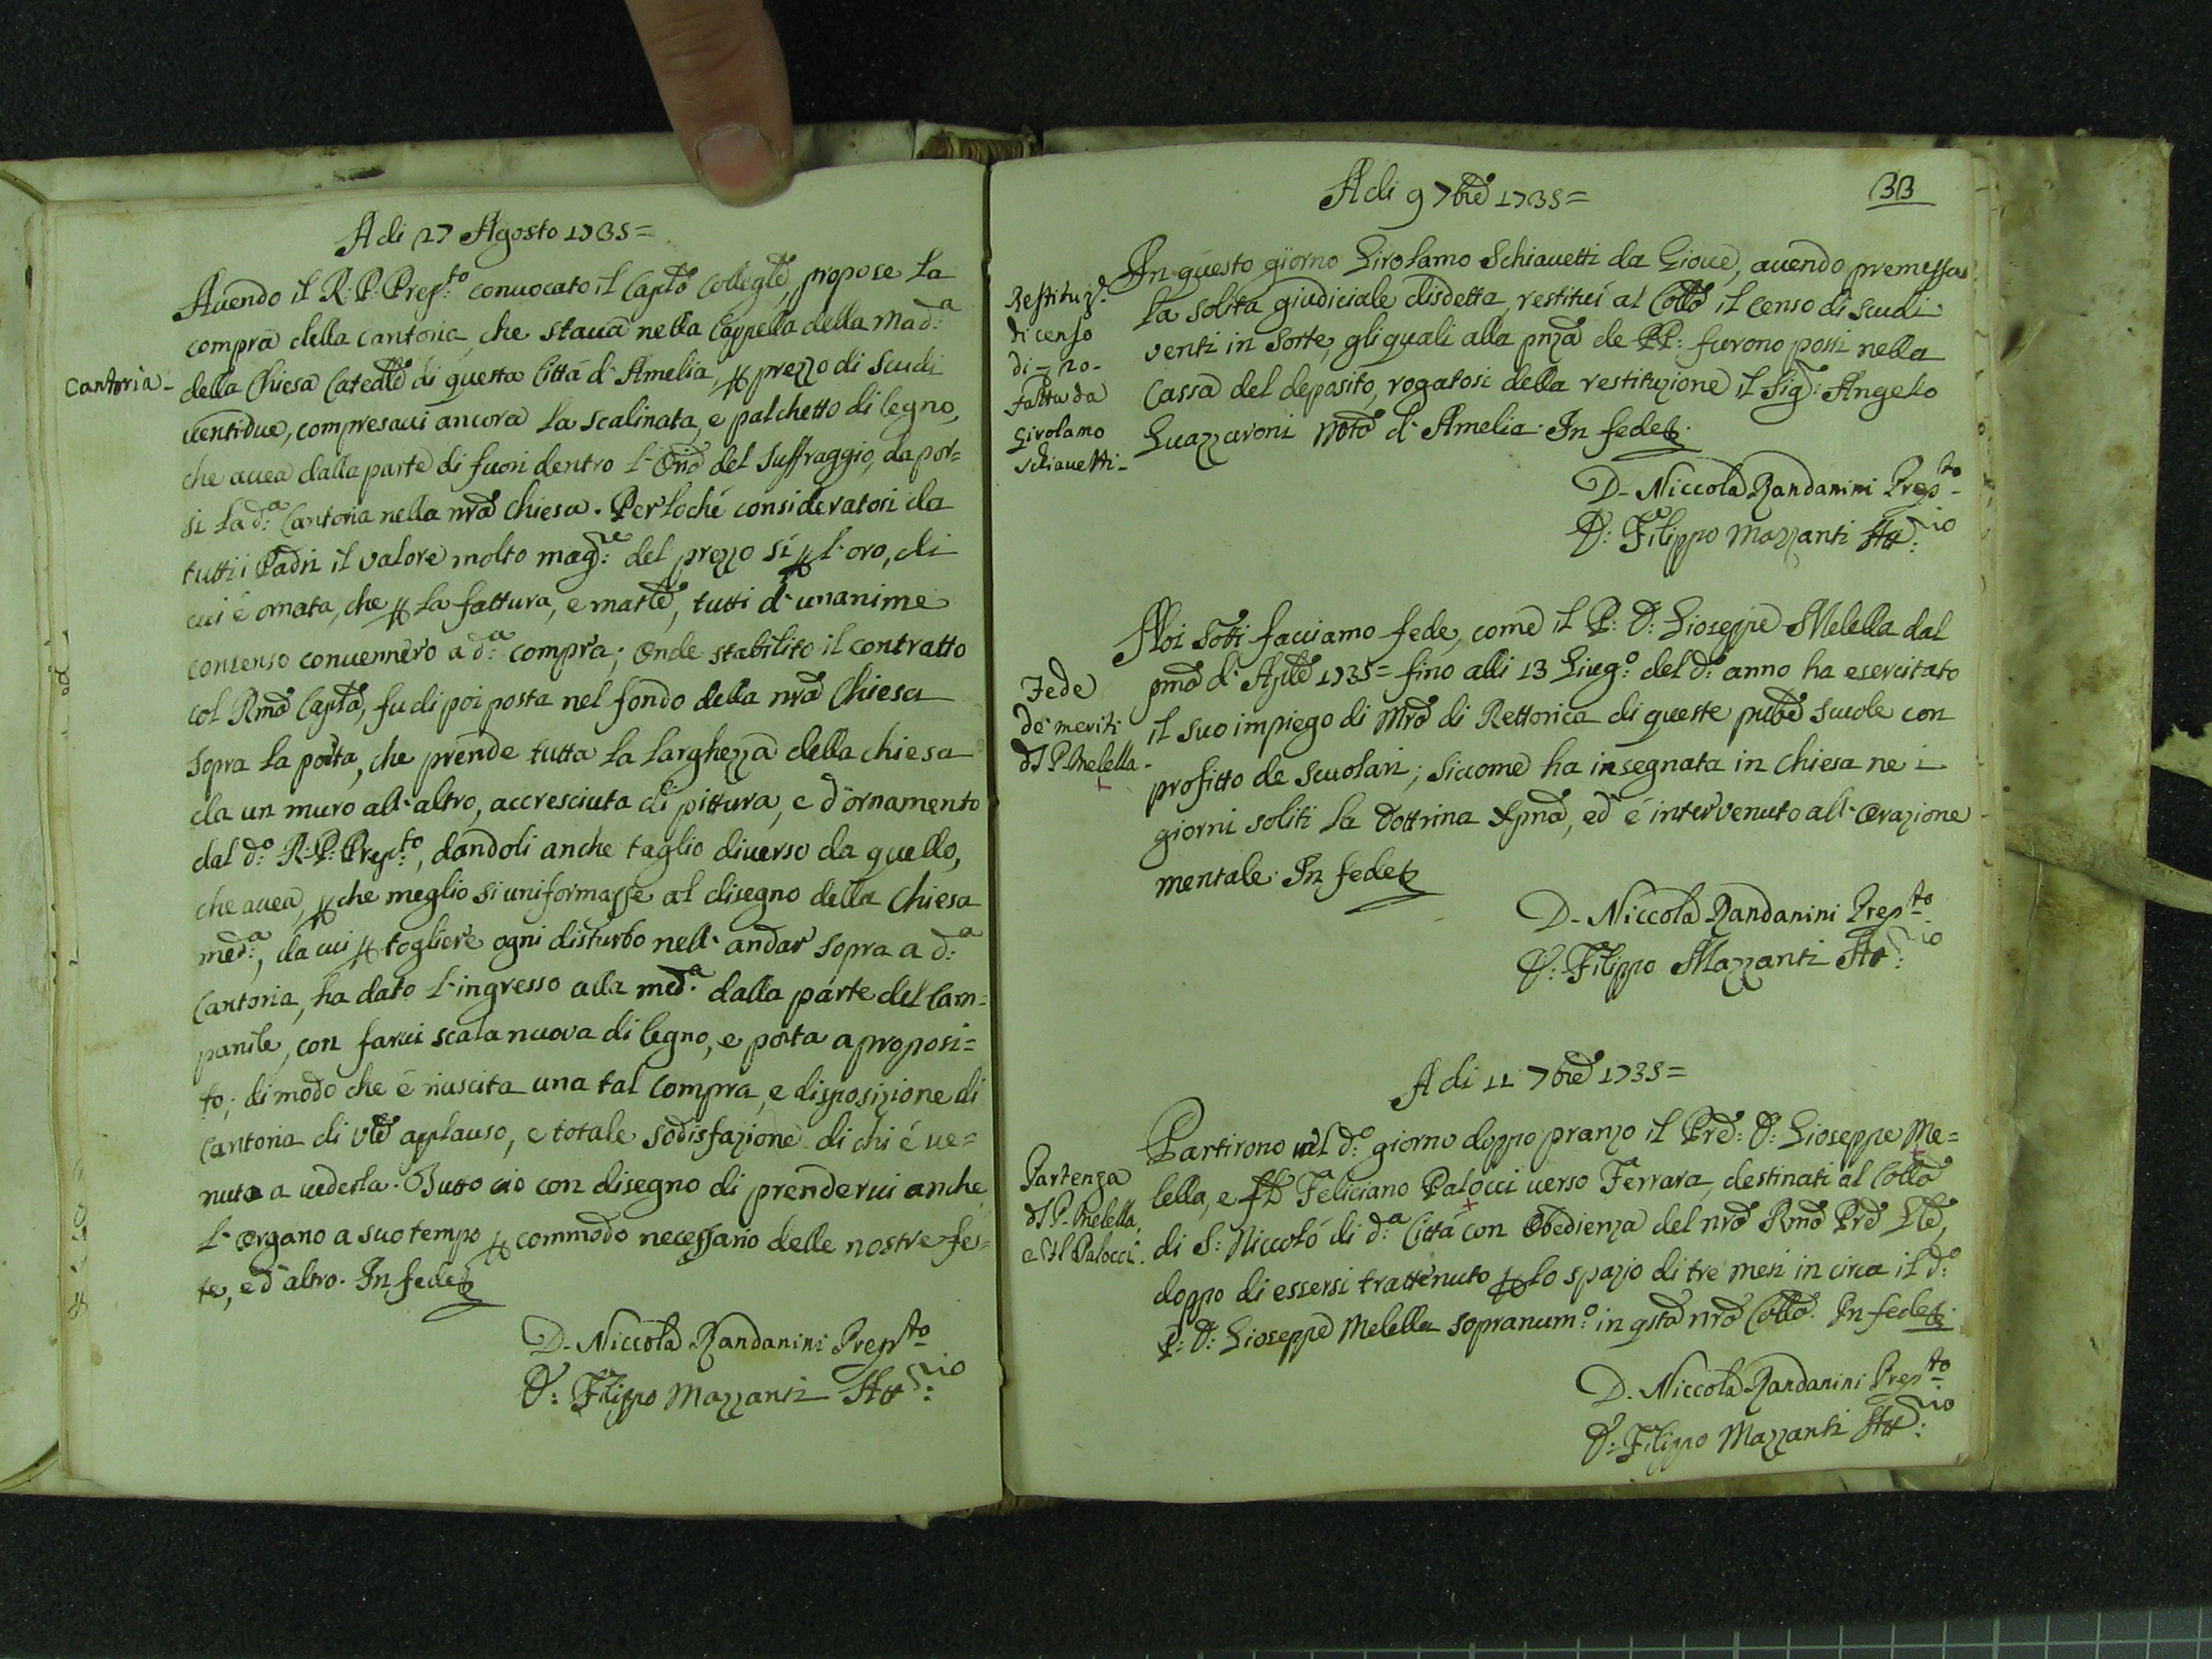 A di 27 Agosto 1735=
Auendo il R. P. Prep:to conuocato il Caplo Collegle, propose la
compra della cantoria, che staua nella Cappella della Mad:a
Cantoria-
della Chiesa Catedle di questa Città d'Amelia, p prezzo di scudi
uentidue, compresaui ancora la scalinata, e palchetto di legno,
che auea dalla parte di fuori dentro l'Orio del Suffraggio, da por=
si la d:a Cantoria nella nra Chiesa. Per loché consideratosi da
tutti i Padri il valore molto mag:re del prezzo sì p l'oro, di
cui è ornata, che p la fattura, e matle, tutti d'unanime
consenso conuennero a d:a compra; Onde stabilito il contratto
col Rmo Caplo, fu di poi posta nel fondo della nra Chiesa
sopra la porta, che prende tutta la larghezza della chiesa
da un muro all'altro, accresciuta di pittura, e d'ornamento
dal d:o R. P. Prep:to, dandoli anche taglio diuerso da quello,
che auea, p che meglio si uniformasse al disegno della Chiesa
med:a, da cui p togliere ogni disturbo nell'andar sopra a d:a
Cantoria, ha dato l'ingresso alla med:a dalla parte del Cam=
panile, con farui scala nuova di legno, e porta a proposi=
to; di modo che è riuscita una tal compra, e disposizione di
cantoria di vle applauso, e totale sodisfazione di chi è ue=
nuto a uederla. Tutto ciò con disegno di prenderui anche
l'organo a suo tempo p commodo necessario delle nostre fe=
te, ed altro. In fede
D. Niccola Randanini Prep:to
D: Filippo Mazzanti Att:rio
33
A di 9 7bre 1735=
Restituz:e
di censo
di = 20-
fatta da
Girolamo
Schiauetti-
In questo giorno Girolamo Schiauetti da Gioue, auendo premessa
la solita giudiciale disdetta, restituì al Collo il censo di scudi
venti in sorte, gli quali alla pnza de PP: furono posti nella
Cassa del deposito, rogatosi della restituzione il Sig: Angelo
Guazzaroni Noto d'Amelia. In fede
D. Niccola Randanini Prep:to
D: Filippo Mazzanti Att:rio
Fede
de meriti
dl P. Melella-
Noi sotti facciamo fede, come il P: D: Gioseppe Melella dal
pmo d'Aple 1735= fino alli 13 Giug:o del d:o anno ha esercitato
il suo impiego di Mro di Rettorica di queste pube scuole con
profitto de scuolari; siccome ha insegnata in Chiesa ne i
giorni soliti la Dottrina Xpna, ed è intervenuto all'Orazione
mentale. In fede
D. Niccola Randanini Prep:to
D: Filippo Mazzanti Att:rio
A di 11 7bre 1735=
Partenza
dl P. Melella,
e fl Palocci.
Partirono nel d:o giorno doppo pranzo il Pre: D: Gioseppe Me=
lella, e fl Feliciano Palocci uerso Ferrara, destinati al Collo
di S: Niccolò di d:a Città con Obedienza del nro Rmo Pre Gle,
doppo di essersi trattenuto p lo spazio di tre mesi in circa il d:o
P: D: Gioseppe Melella sopranum:o in qsto nro Collo. In fede
D. Niccola Randanini Prep:to
D: Filippo Mazzanti Att:rio